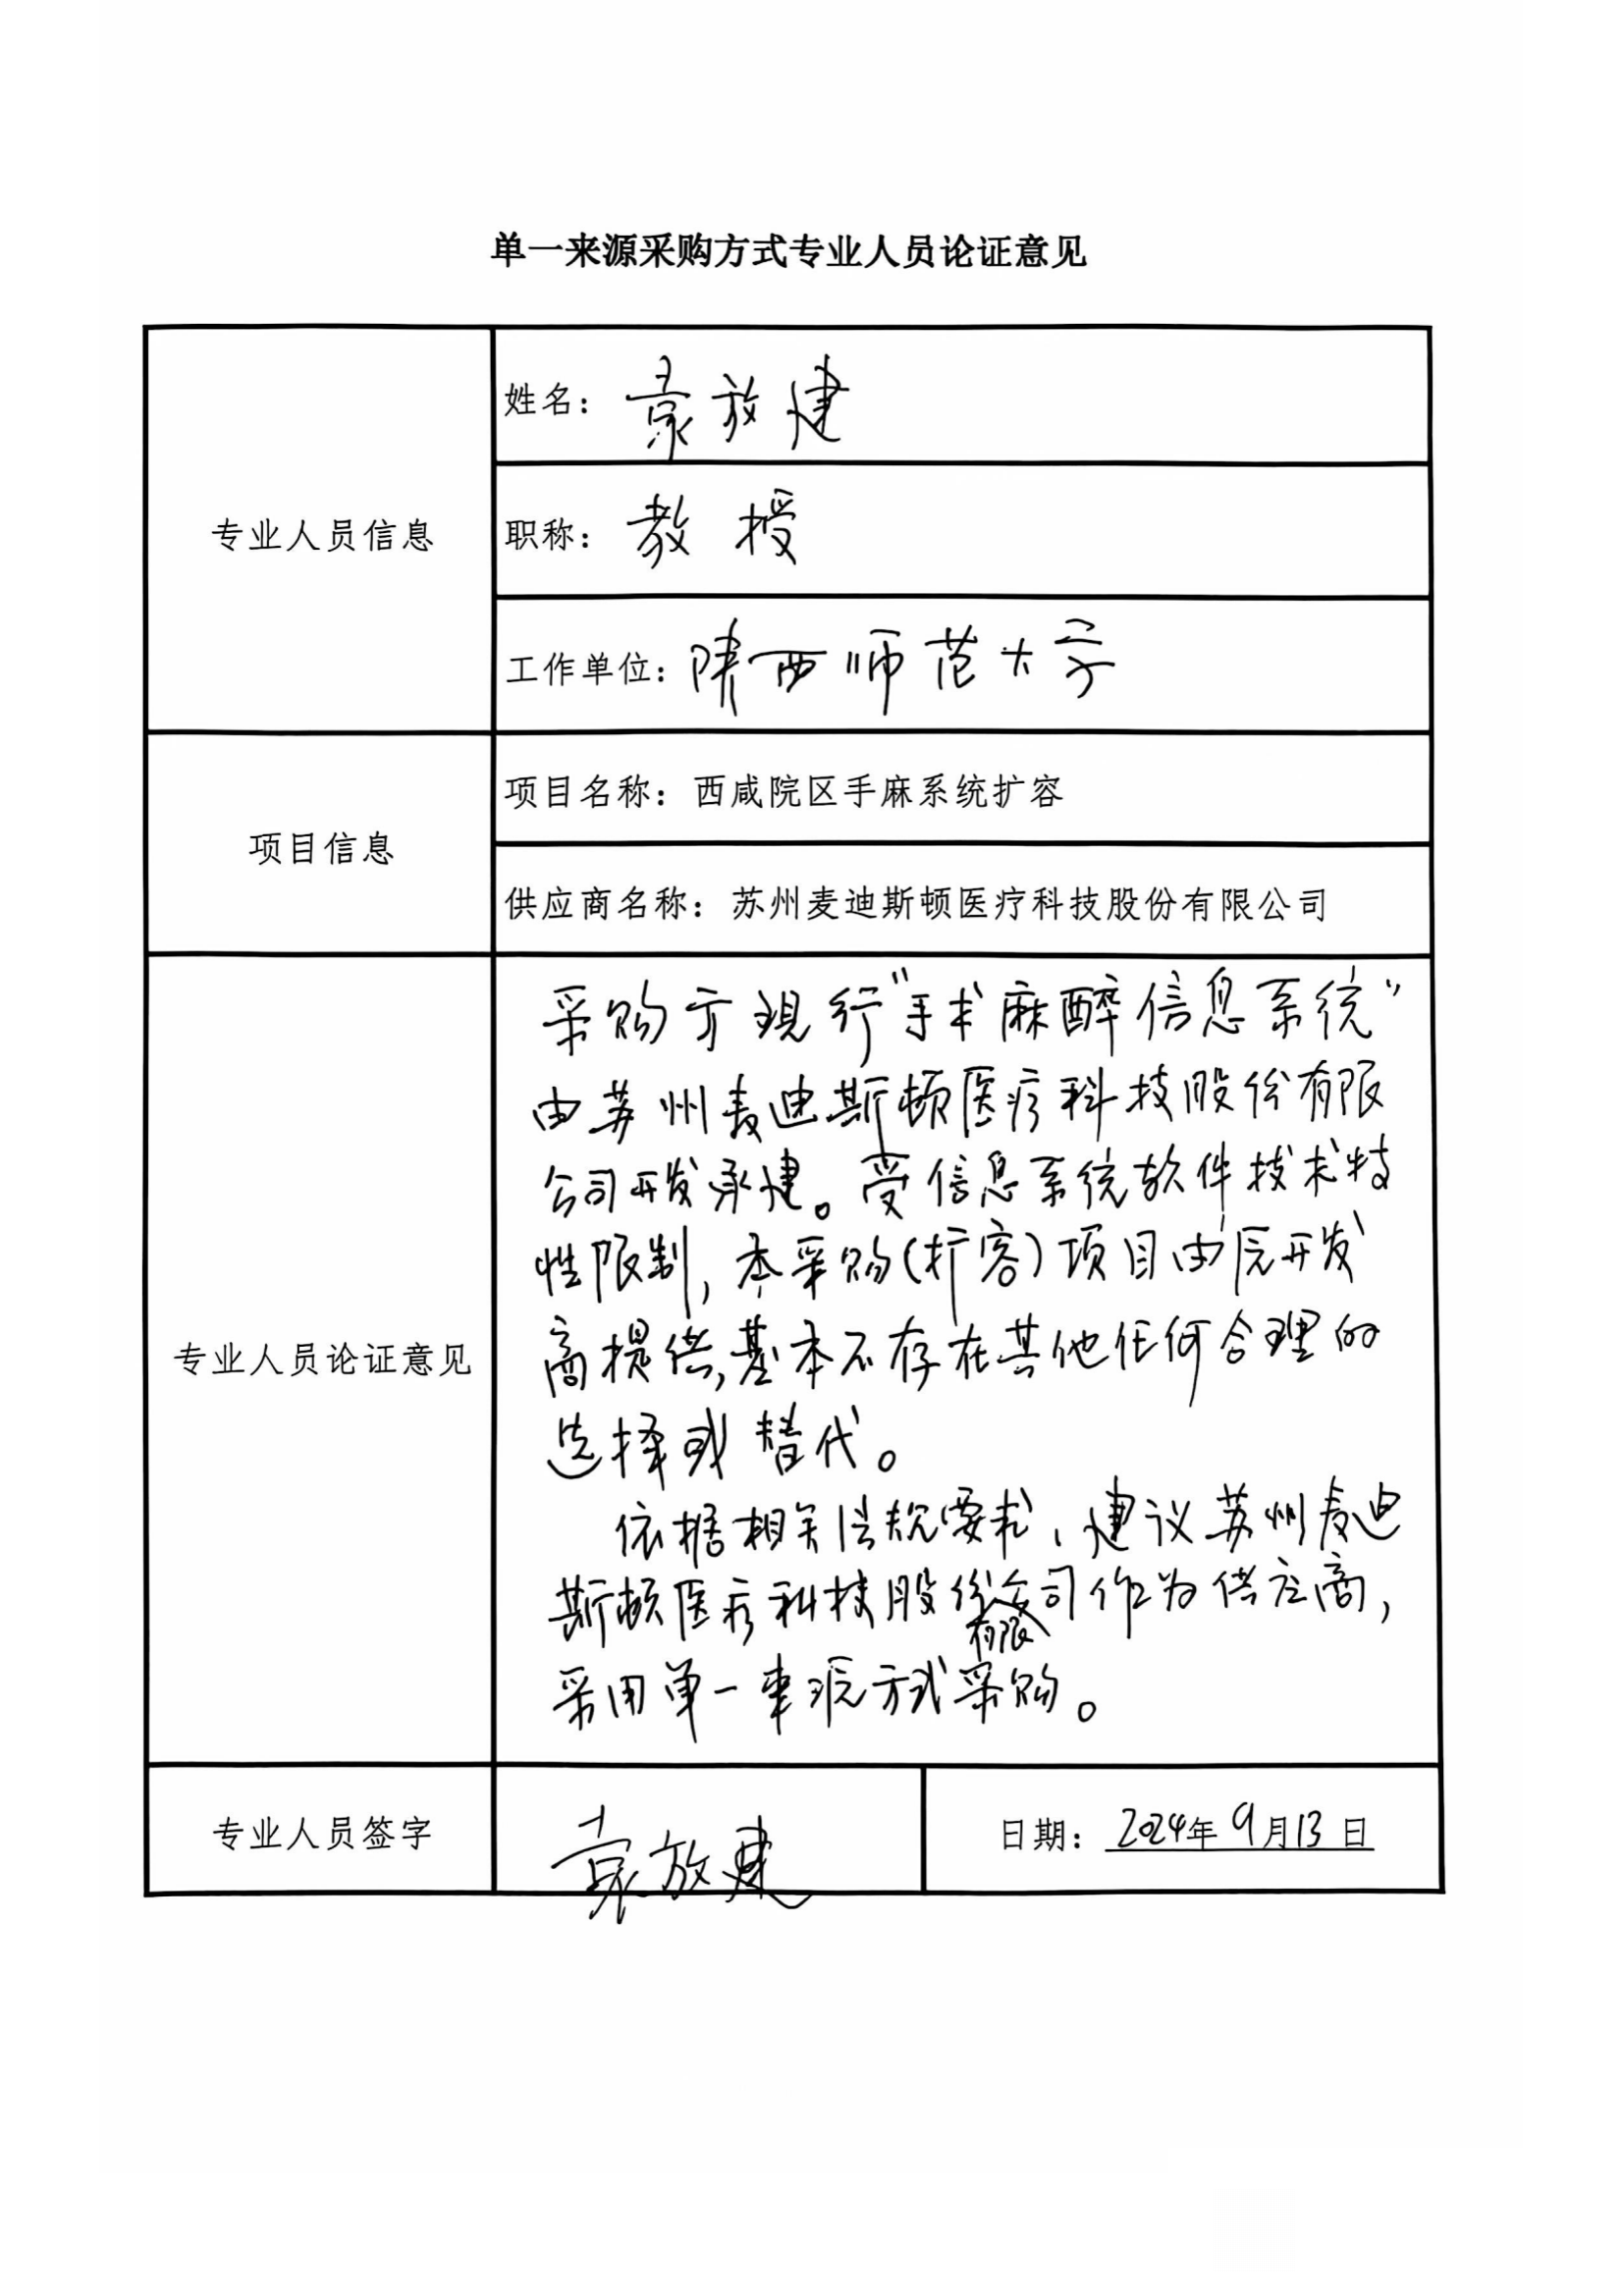 单一来源采购方式专业人员论证意见
专业人员信息
姓名：袁放建
职称：教授
工作单位：陕西师范大学
项目信息
项目名称：西咸院区手麻系统扩容
供应商名称：苏州麦迪斯顿医疗科技股份有限公司
专业人员论证意见
采购方现行“手术麻醉信息系统”
由苏州麦迪斯顿医疗科技股份有限
公司开发承建。受信息系统软件技术特
性限制，本采购（扩容）项目由原开发
商提供，基本不存在其他任何合理的
选择或替代。
依据相关法规要求，建议苏州麦迪
斯顿医疗科技股份有限公司作为供应商，
采用单一来源方式采购。
专业人员签字
袁放建
日期：2024年9月13日